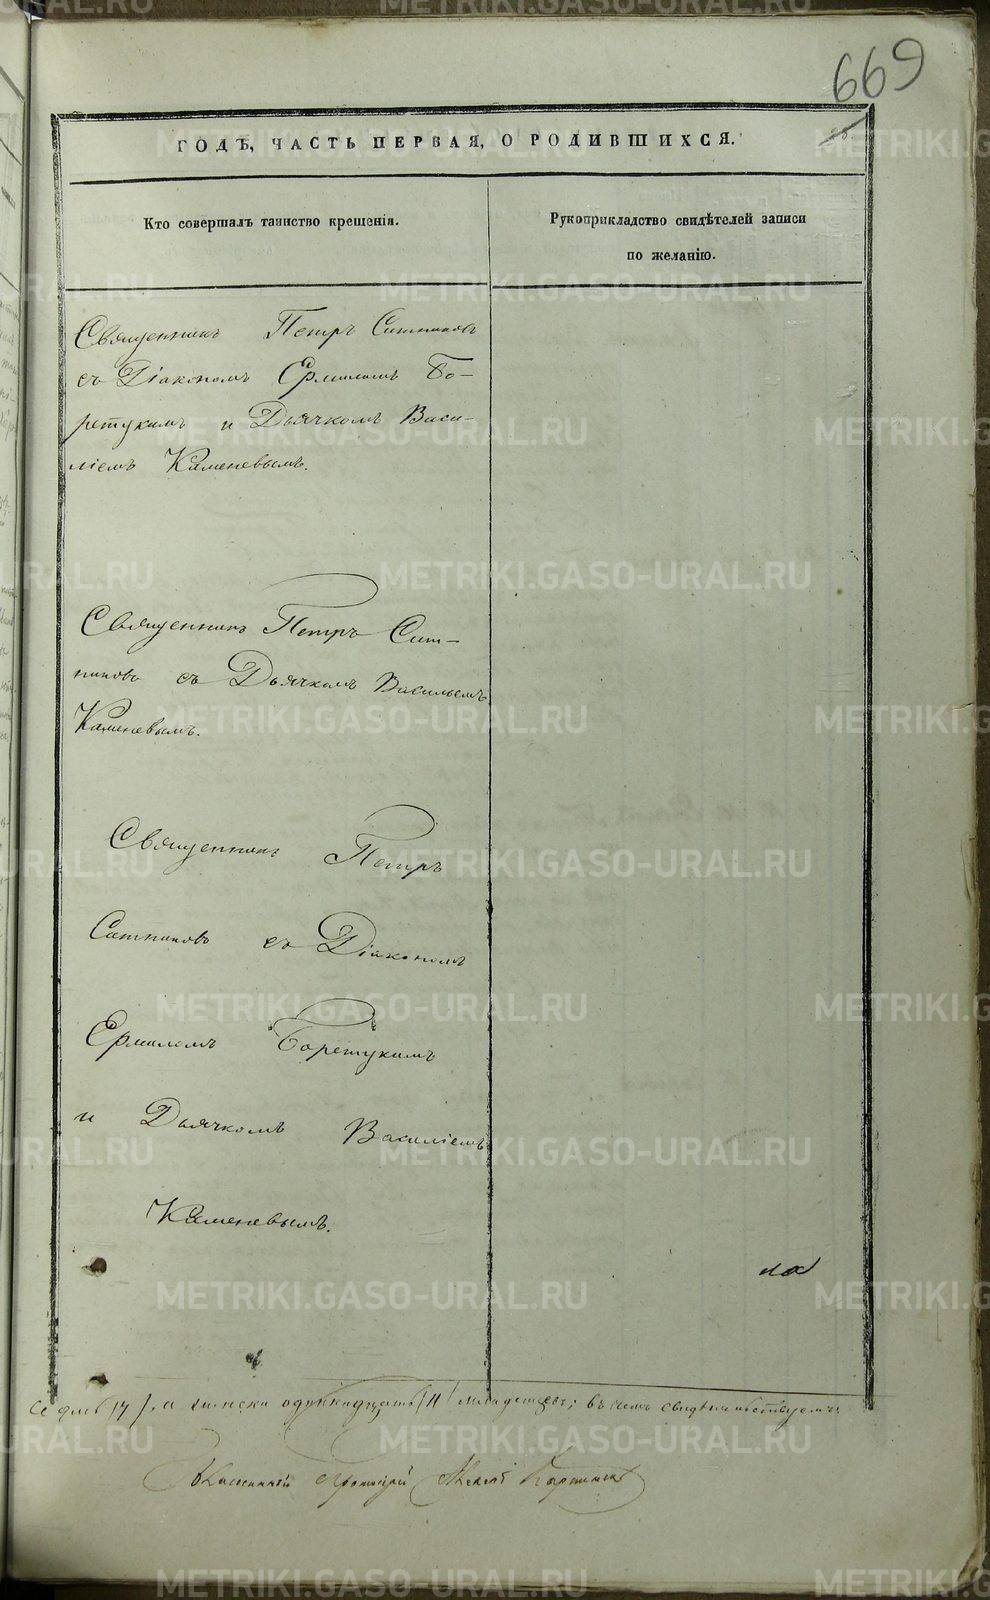 669
ГОДѢ, ЧАСТЬ ПЕРВАЯ, О РОДИВШИХСЯ.
Кто совершалъ таинство крещенія.
Рукоприкладство свидѣтелей записи
по желанію.
Священникъ Петръ Ситниковъ
съ Діакономъ Ермиломъ Бо-
рецкимъ и Дьячкомъ Васи-
ліемъ Каменевымъ.
Священникъ Петръ Сит-
никовъ съ Дьячкомъ Васильемъ
Каменевымъ.
Священникъ Петръ
Ситниковъ съ Діакономъ
Ермиломъ Борецкимъ
и Дьячкомъ Василіемъ
Каменевымъ.
а женска одиннадцать /11/ младенцевъ; въ чемъ свидѣтельствуемъ:
METRIKI.GASO-URAL.RU